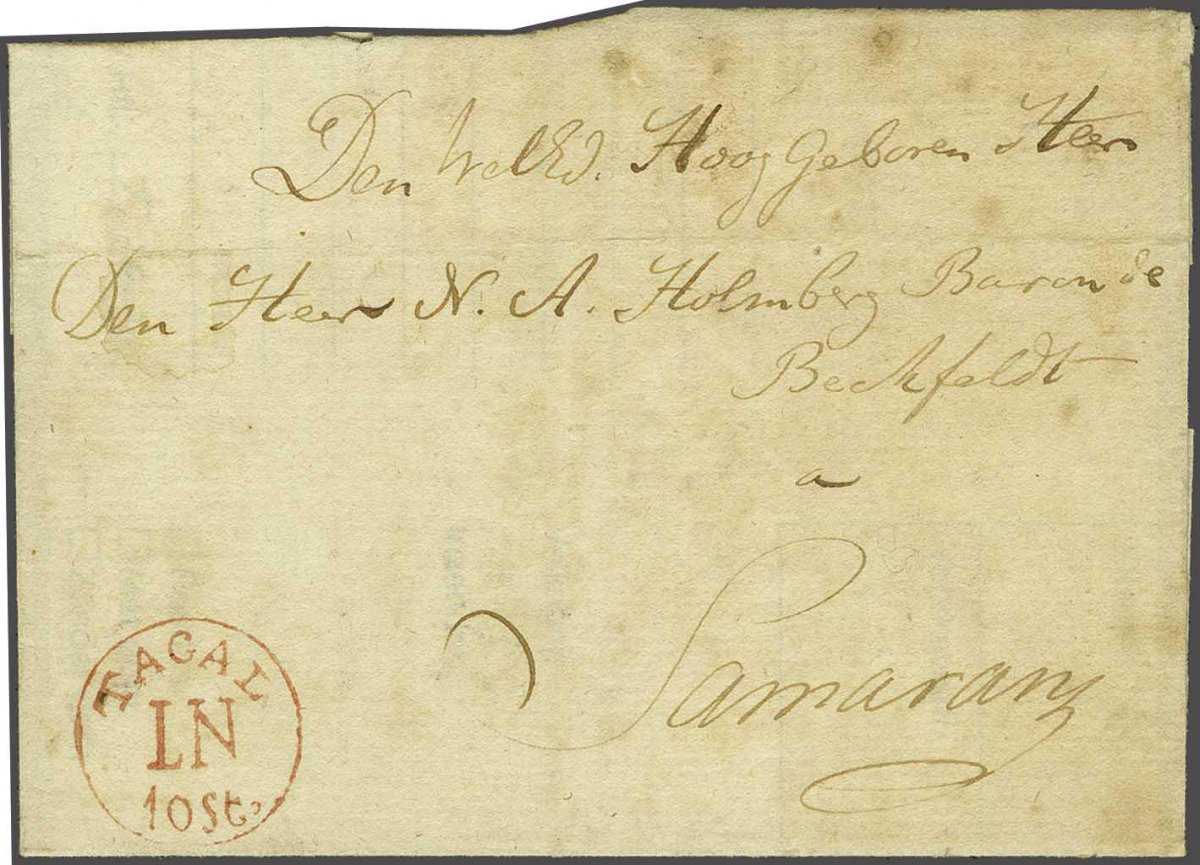 Den WelEd. Hoog Geboren Heer
Den Heer N. A. Holmberg Baron de
Beckfeldt
a
Samarang
TAGAL
LN
10 St.